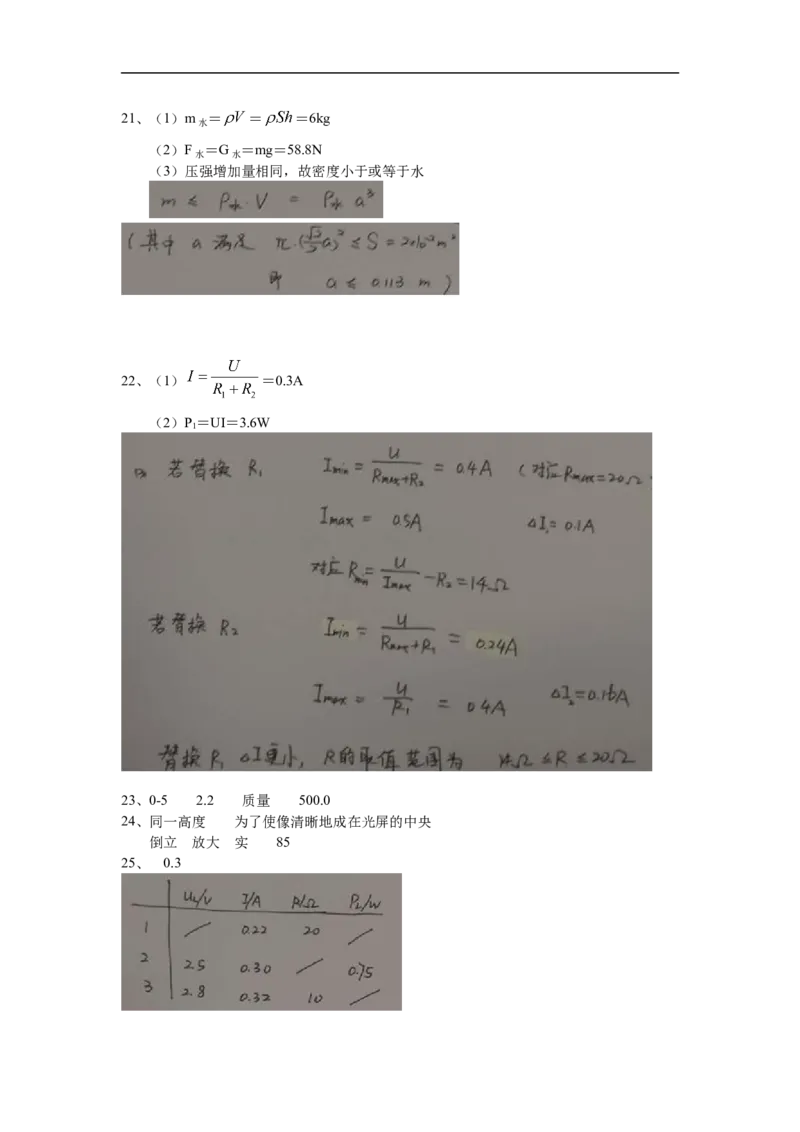 21、（1）m水＝ρV＝ρSh＝6kg
（2）F水＝G水＝mg＝58.8N
（3）压强增加量相同，故密度小于或等于水
m ≤ ρ水·V = ρ水 a³
(其中 a 满足 π·(√2/2 a)² ≤ S = 2×10⁻²m²
即 a ≤ 0.113 m )
22、（1）I = U/(R₁+R₂) ＝0.3A
（2）P₁＝UI＝3.6W
(3) 若替换 R₁ Imin = U/(Rmax+R₂) = 0.4A (对应Rmax=20Ω
Imax = 0.5A ΔI₁=0.1A
对应Rmin = U/Imax - R₂ = 14Ω
若替换 R₂ Imin = U/(Rmax+R₁) = 0.24A
Imax = U/R₁ = 0.4A ΔI₂=0.16A
替换R₁ ΔI更小, R的取值范围为 14Ω ≤R ≤20Ω
23、0-5 2.2 质量 500.0
24、同一高度 为了使像清晰地成在光屏的中央
倒立 放大 实 85
25、 0.3
UL/V I/A R/Ω PL/W
1 / 0.22 20 /
2 2.5 0.30 / 0.75
3 2.8 0.32 10 /